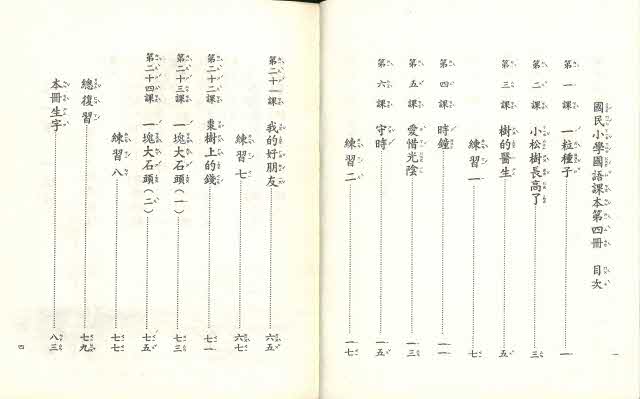 國民小學國語課本第四冊　目次
第一課　一粒種子　一
第二課　小松樹長高了　三
第三課　樹的醫生　五
練習一　七
第四課　時鐘　一一
第五課　愛惜光陰　一三
第六課　守時　一五
練習二　一七
一
第二十一課　我的好朋友　六五
練習七　六七
第二十二課　棗樹上的錢　七一
第二十三課　一塊大石頭（一）　七三
第二十四課　一塊大石頭（二）　七五
練習八　七七
總復習　七九
本冊生字　八三
四